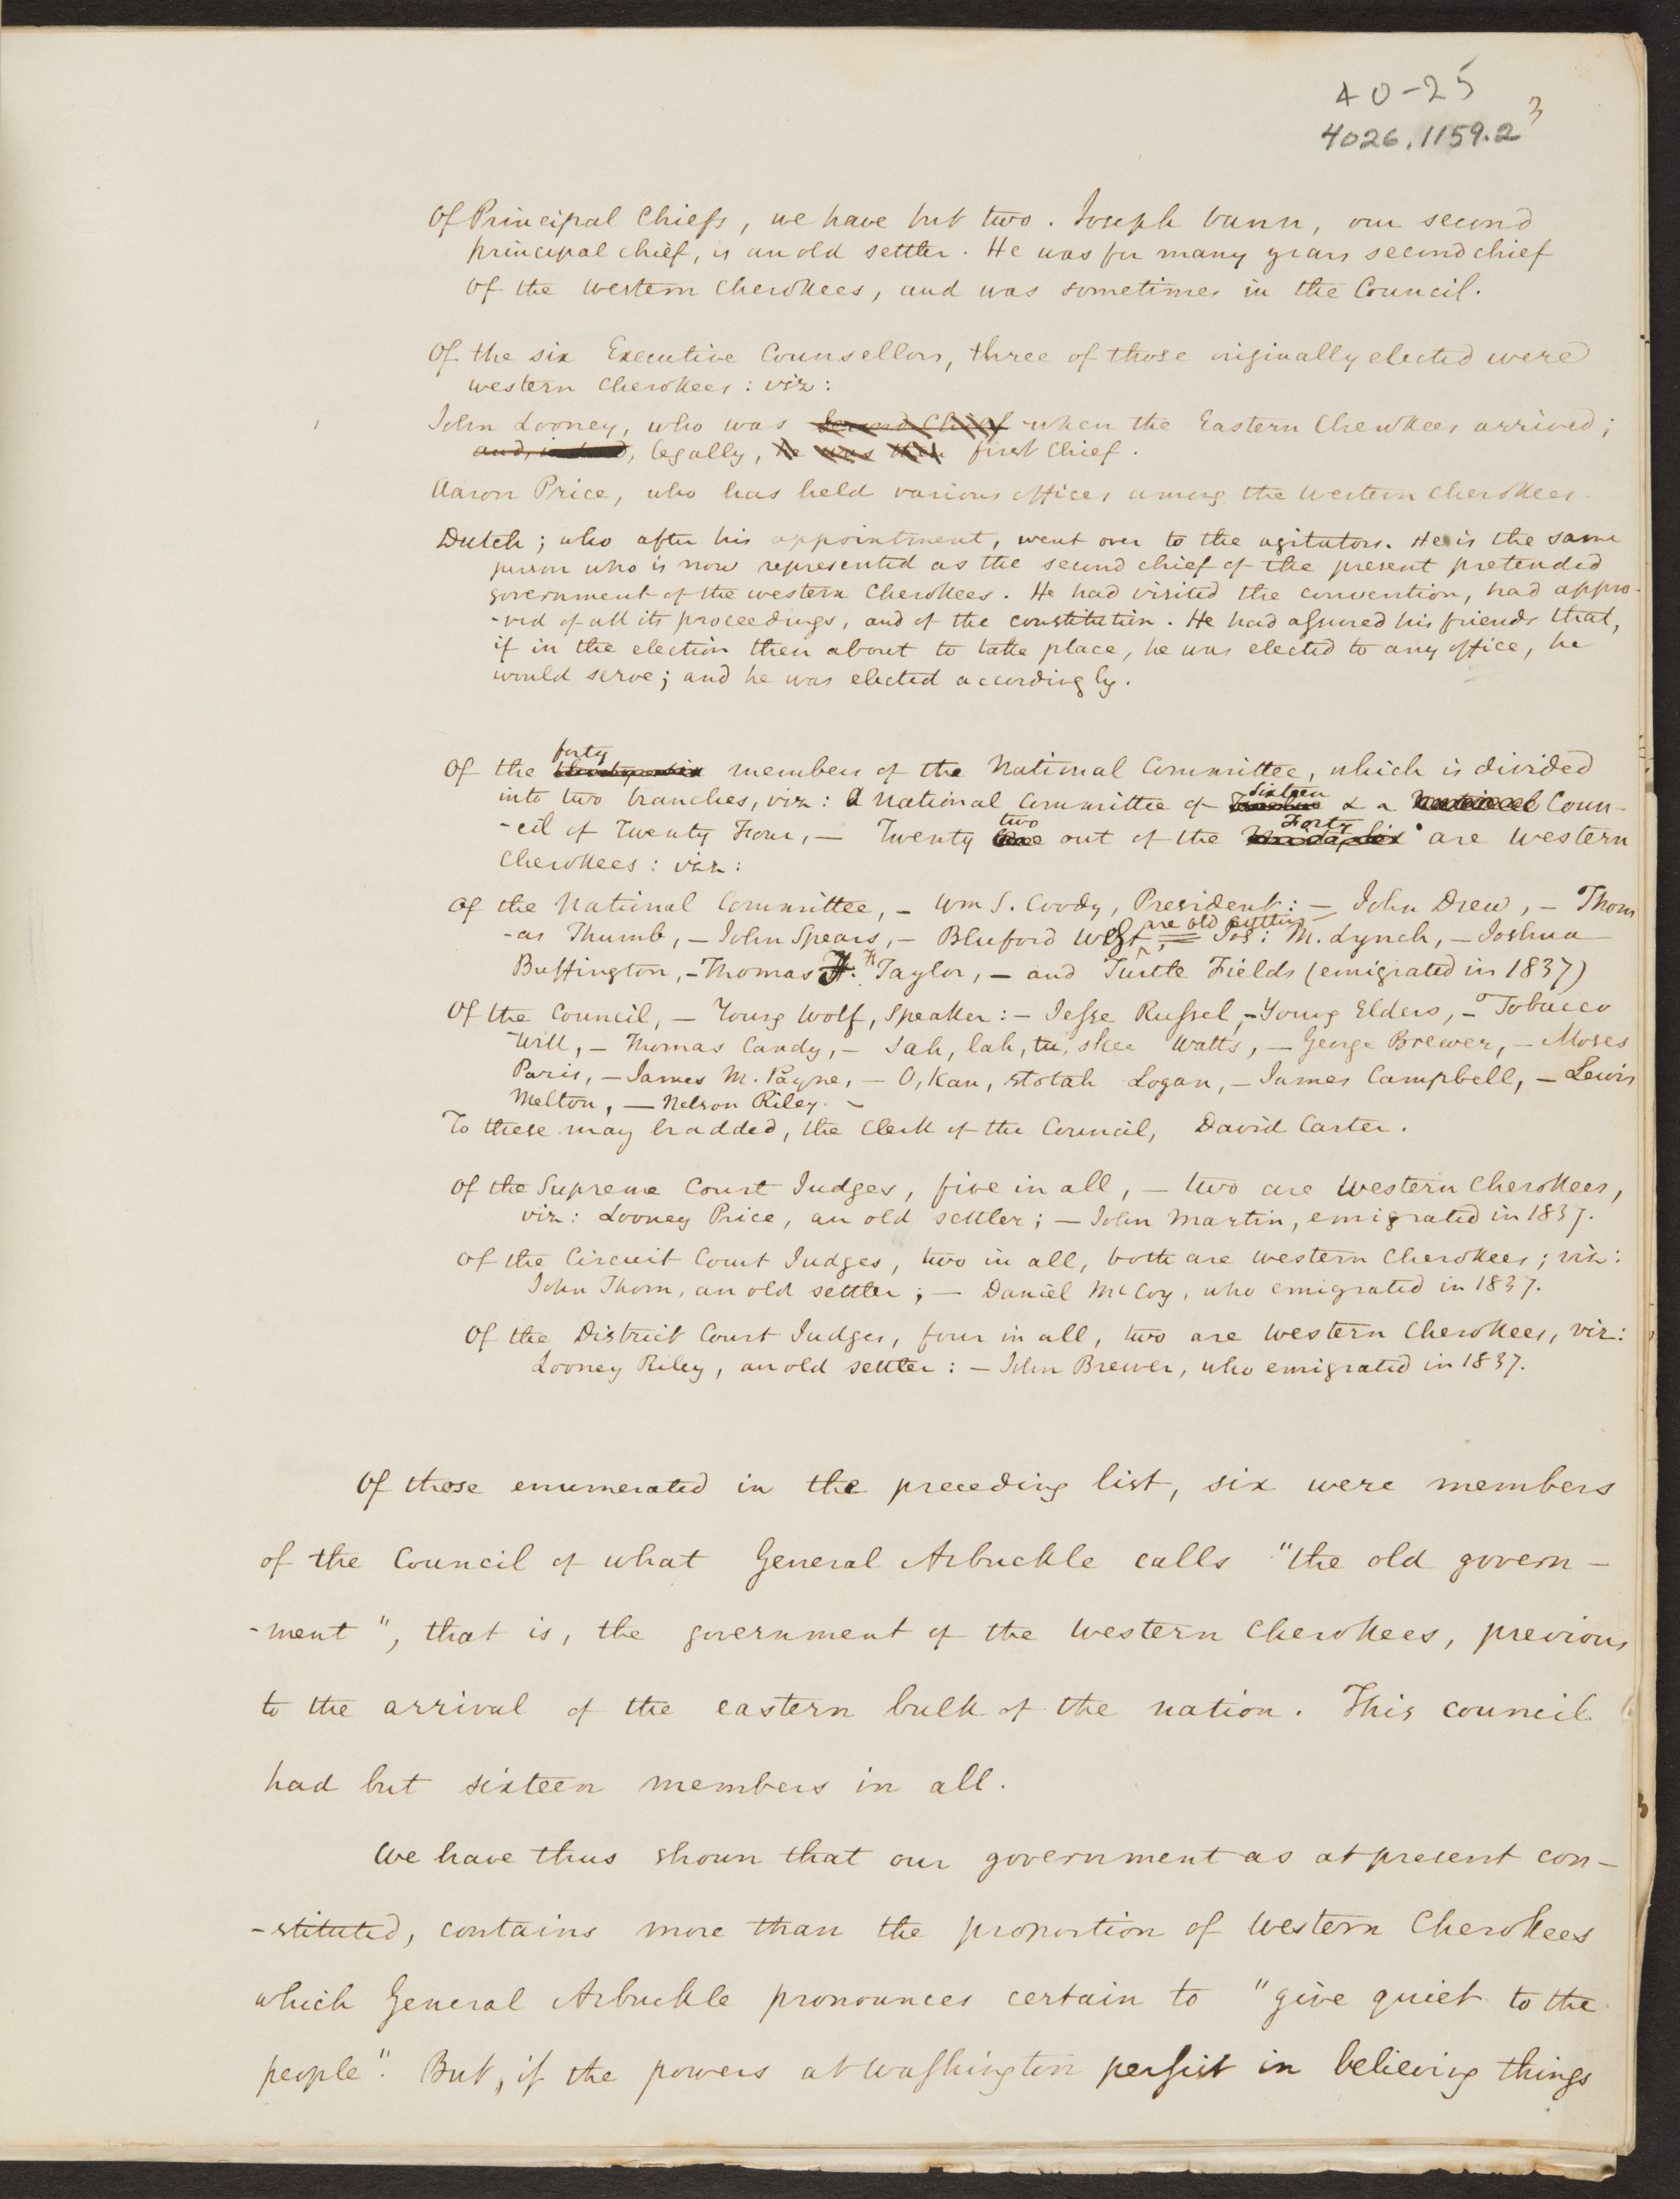 40-25
3
4026.1159.2
Of Principal Chiefs, we have but two. Joseph Vann, our second
principal chief, is an old settler. He was for many years second chief
of the western Cherokees, and was sometimes in the Council.
Of the six Executive Counsellors, three of those originally elected were
western Cherokees: viz:
John Looney, who was Second Chief when the Eastern Cherokees arrived;
and, indeed, legally, he was then first Chief.
Aaron Price, who has held various offices among the Western Cherokees.
Dutch; who after his appointment, went over to the agitators. He is the same
person who is now represented as the second chief of the present pretended
government of the western Cherokees. He had visited the convention, had appro-
-ved of all its proceedings, and of the constitution. He had assured his friends that,
if in the election then about to take place, he was elected to any office, he
would serve; and he was elected accordingly.
forty
Of the members of the National Committee, which is divided
sixteen
into two branches, viz: A National Committee of & a Coun-
two Forty
-cil of Twenty Four, — Twenty one out of the are Western
Cherokees: viz:
Of the National Committee, — Wm S. Coody, President: — John Drew, — Thom
are old settlers
-as Thumb, — John Spears, — Bluford West — Jos: M. Lynch, — Joshua
Buffington, — Thomas F. H. Taylor, — and Turtle Fields (emigrated in 1837)
Of the Council, — Young Wolf, Speaker: — Jesse Russel, — Young Elders, — Tobacco
Will, — Thomas Candy, — Sah, lah, tu, skee Watts, — George Brewer, — Moses
Paris, — James M. Payne, — O, Kan, stotah Logan, — James Campbell, — Lewis
Melton, — Nelson Riley. —
To these may be added, the Clerk of the Council, David Carter.
Of the Supreme Court Judges, five in all, — two are Western Cherokees,
viz: Looney Price, an old settler; — John Martin, emigrated in 1837.
Of the Circuit Court Judges, two in all, both are western Cherokees; viz:
John Thorn, an old settler; — Daniel McCoy, who emigrated in 1837.
Of the District Court Judges, four in all, two are Western Cherokees, viz:
Looney Riley, an old settler: — John Brewer, who emigrated in 1837.
Of those enumerated in the preceding list, six were members
of the Council of what General Arbuckle calls "the old govern-
-ment", that is, the government of the Western Cherokees, previous
to the arrival of the eastern bulk of the nation. This council
had but sixteen members in all.
We have thus shown that our government as at present con-
-stituted, contains more than the proportion of Western Cherokees
which General Arbuckle pronounces certain to "give quiet to the
people". But, if the powers at Washington persist in believing things